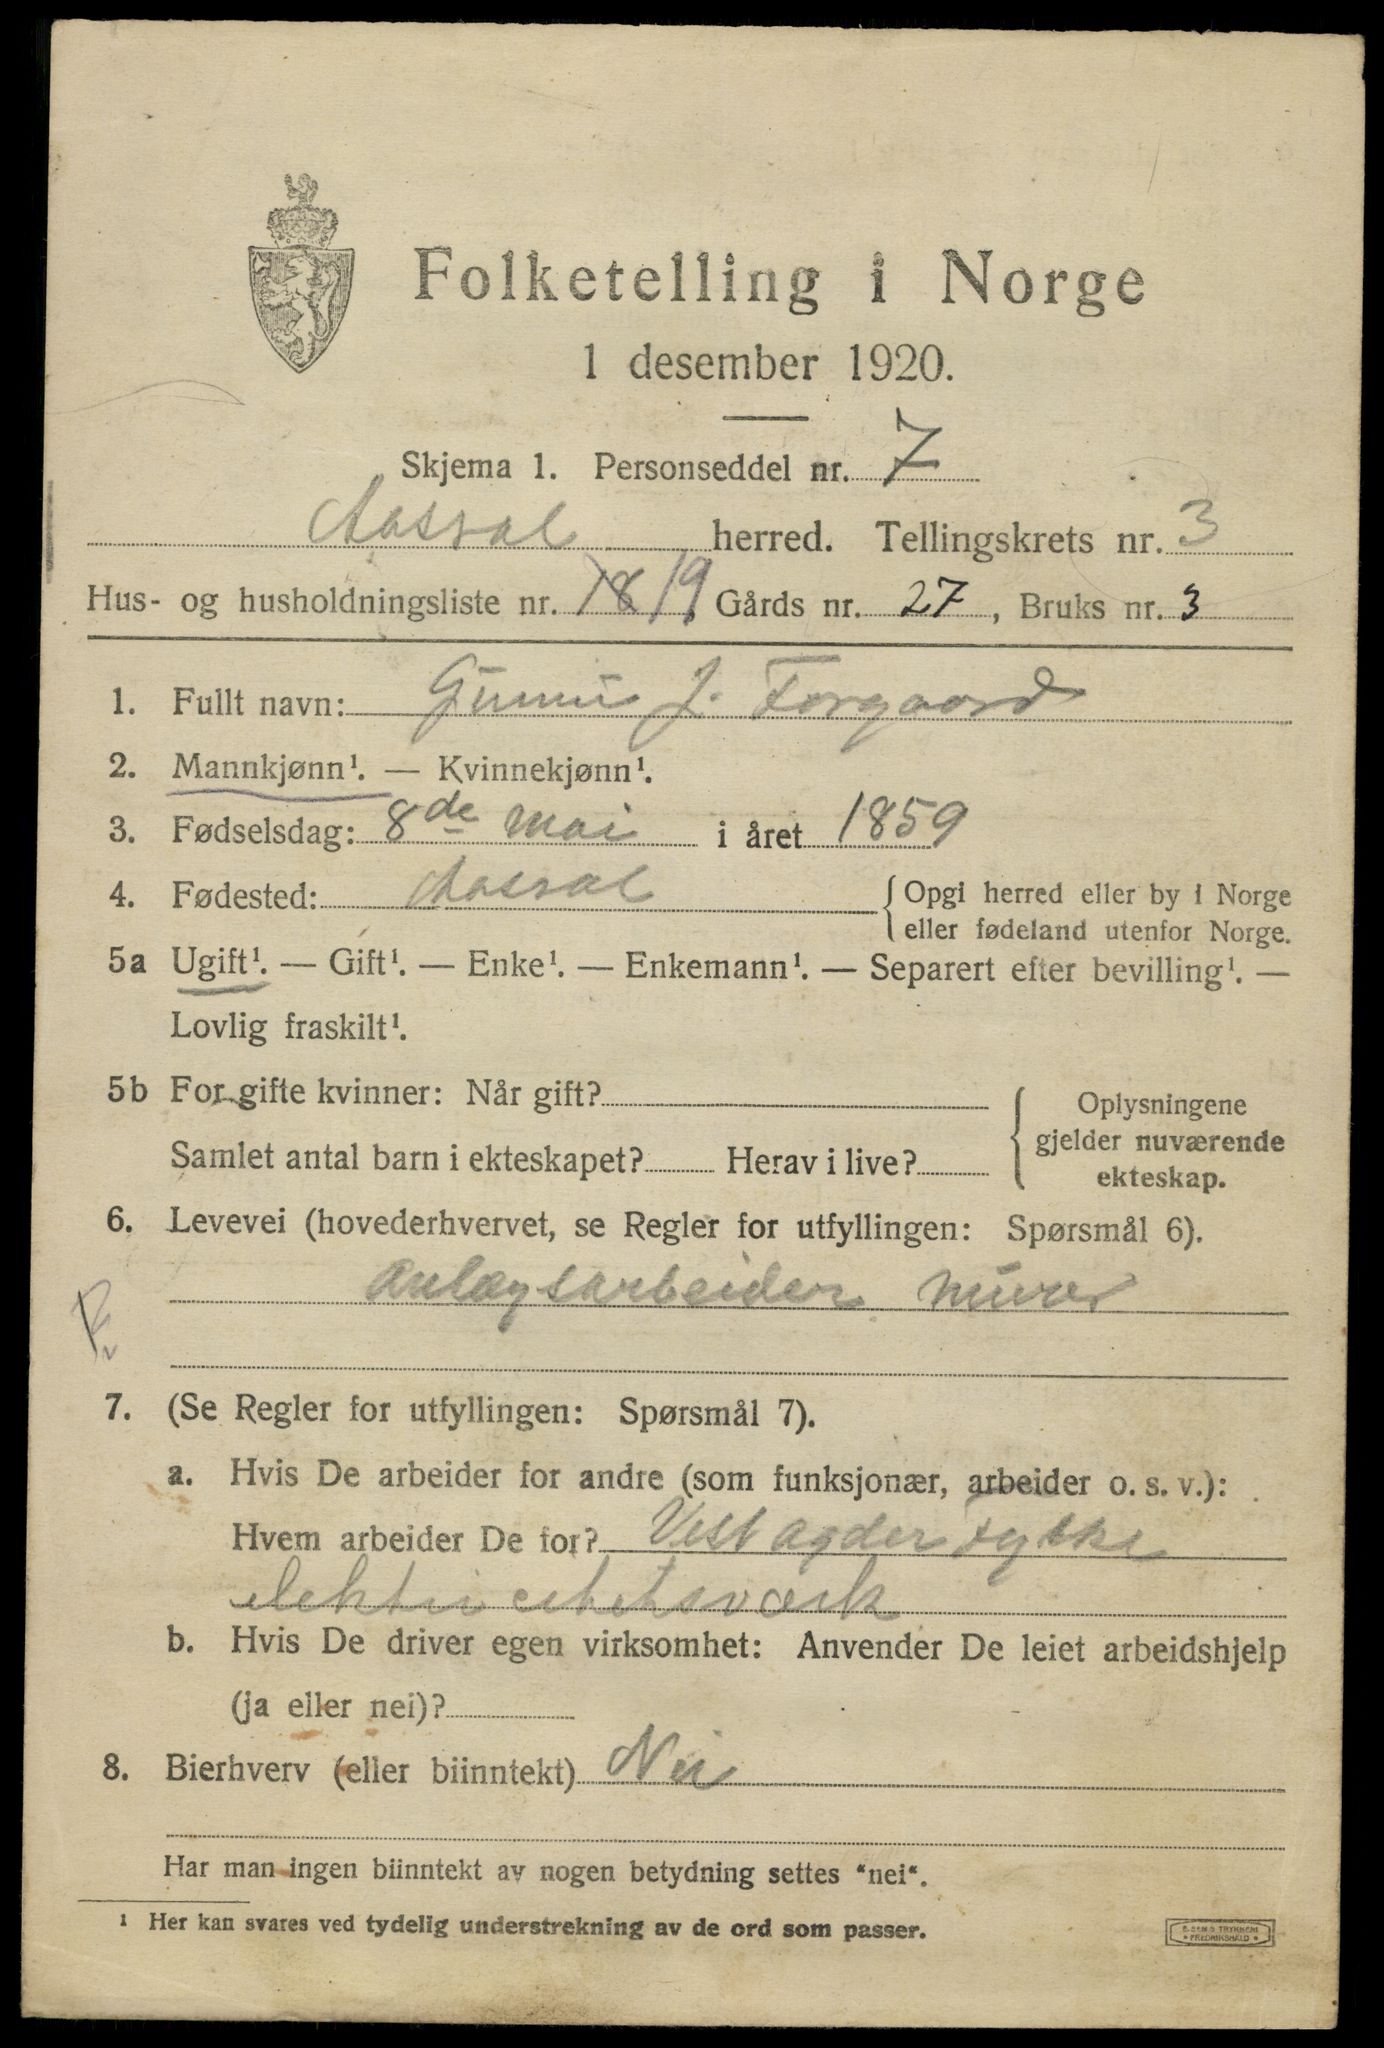 Folketelling i Norge
1 desember 1920.
Skjema 1. Personseddel nr. 7
Aaseral herred. Tellingskrets nr. 3
Hus- og husholdningsliste nr. 18 19 Gårds nr. 27, Bruks nr. 3
1. Fullt navn: J. Forgaard
2. Mannkjønn¹. — Kvinnekjønn¹.
3. Fødselsdag: 8de mai i året 1859
4. Fødested: Aaseral {Opgi herred eller by i Norge
eller fødeland utenfor Norge.
5a Ugift¹. — Gift¹. — Enke¹. — Enkemann¹. — Separert efter bevilling¹. —
Lovlig fraskilt¹.
5b For gifte kvinner: Når gift? Oplysningene
gjelder nuværende
Samlet antal barn i ekteskapet? Herav i live? ekteskap.
6. Levevei (hovederhvervet, se Regler for utfyllingen: Spørsmål 6).
Anlægsarbeider murer
7. (Se Regler for utfyllingen: Spørsmål 7).
a. Hvis De arbeider for andre (som funksjonær, arbeider o. s. v.):
Hvem arbeider De for? Vest agder fylke
elektricitetsværk
b. Hvis De driver egen virksomhet: Anvender De leiet arbeidshjelp
(ja eller nei)?
8. Bierhverv (eller biinntekt) Nei
Har man ingen biinntekt av nogen betydning settes "nei".
¹ Her kan svares ved tydelig understrekning av de ord som passer.